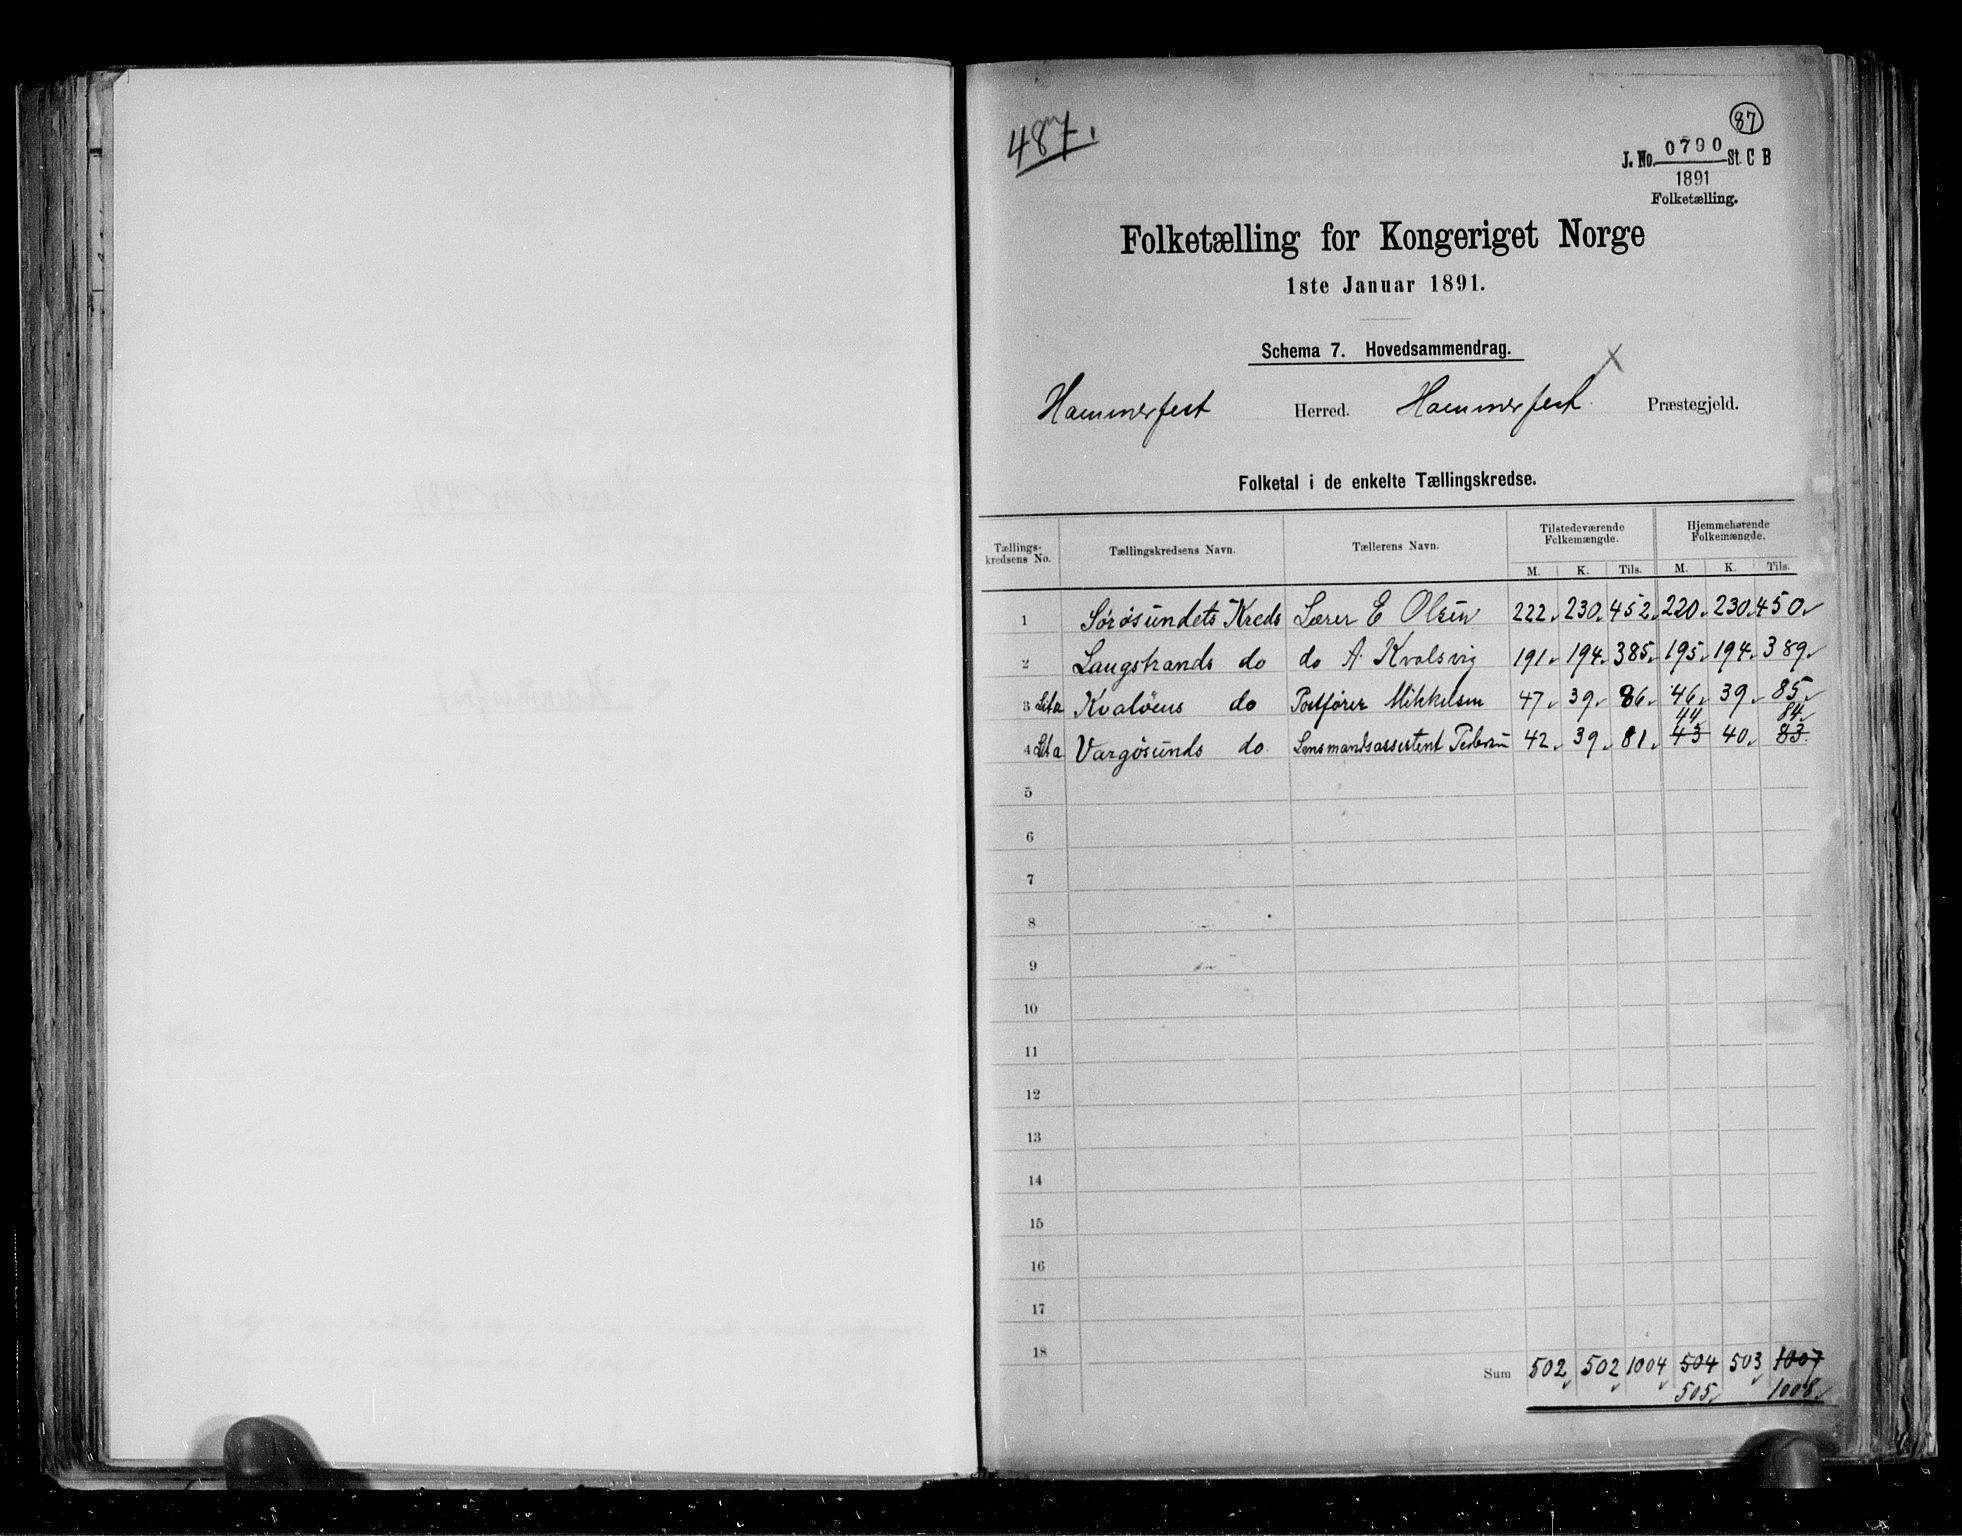 87
487.
J. No. 0790 St. C B
1891
Folketælling.
Folketælling for Kongeriget Norge
1ste Januar 1891.
Schema 7. Hovedsammendrag.
Hammerfest Herred. Hammerfest Præstegjeld.
Folketal i de enkelte Tællingskredse.
Tællingskredsens No. Tællingskredsens Navn. Tællerens Navn. Tilstedeværende Folkemængde. Hjemmehørende Folkemængde.
M. K. Tils. M. K. Tils.
1 Sørøsundets Kreds Lærer E Olsen 222 230 452 220 230 450
2 Langstrands do do A. Kvalsvig 191 194 385 195 194 389
3 Lit a Kvaløens do Postfører Mikkelsen 47 39 86 46 39 85
44 84
4 Lit a Vargøsunds do Lensmandsassistent Pedersen 42 39 81 43 40 83
5
6
7
8
9
10
11
12
13
14
15
16
17
18
Sum 502 502 1004 504 503 1007
505 1008